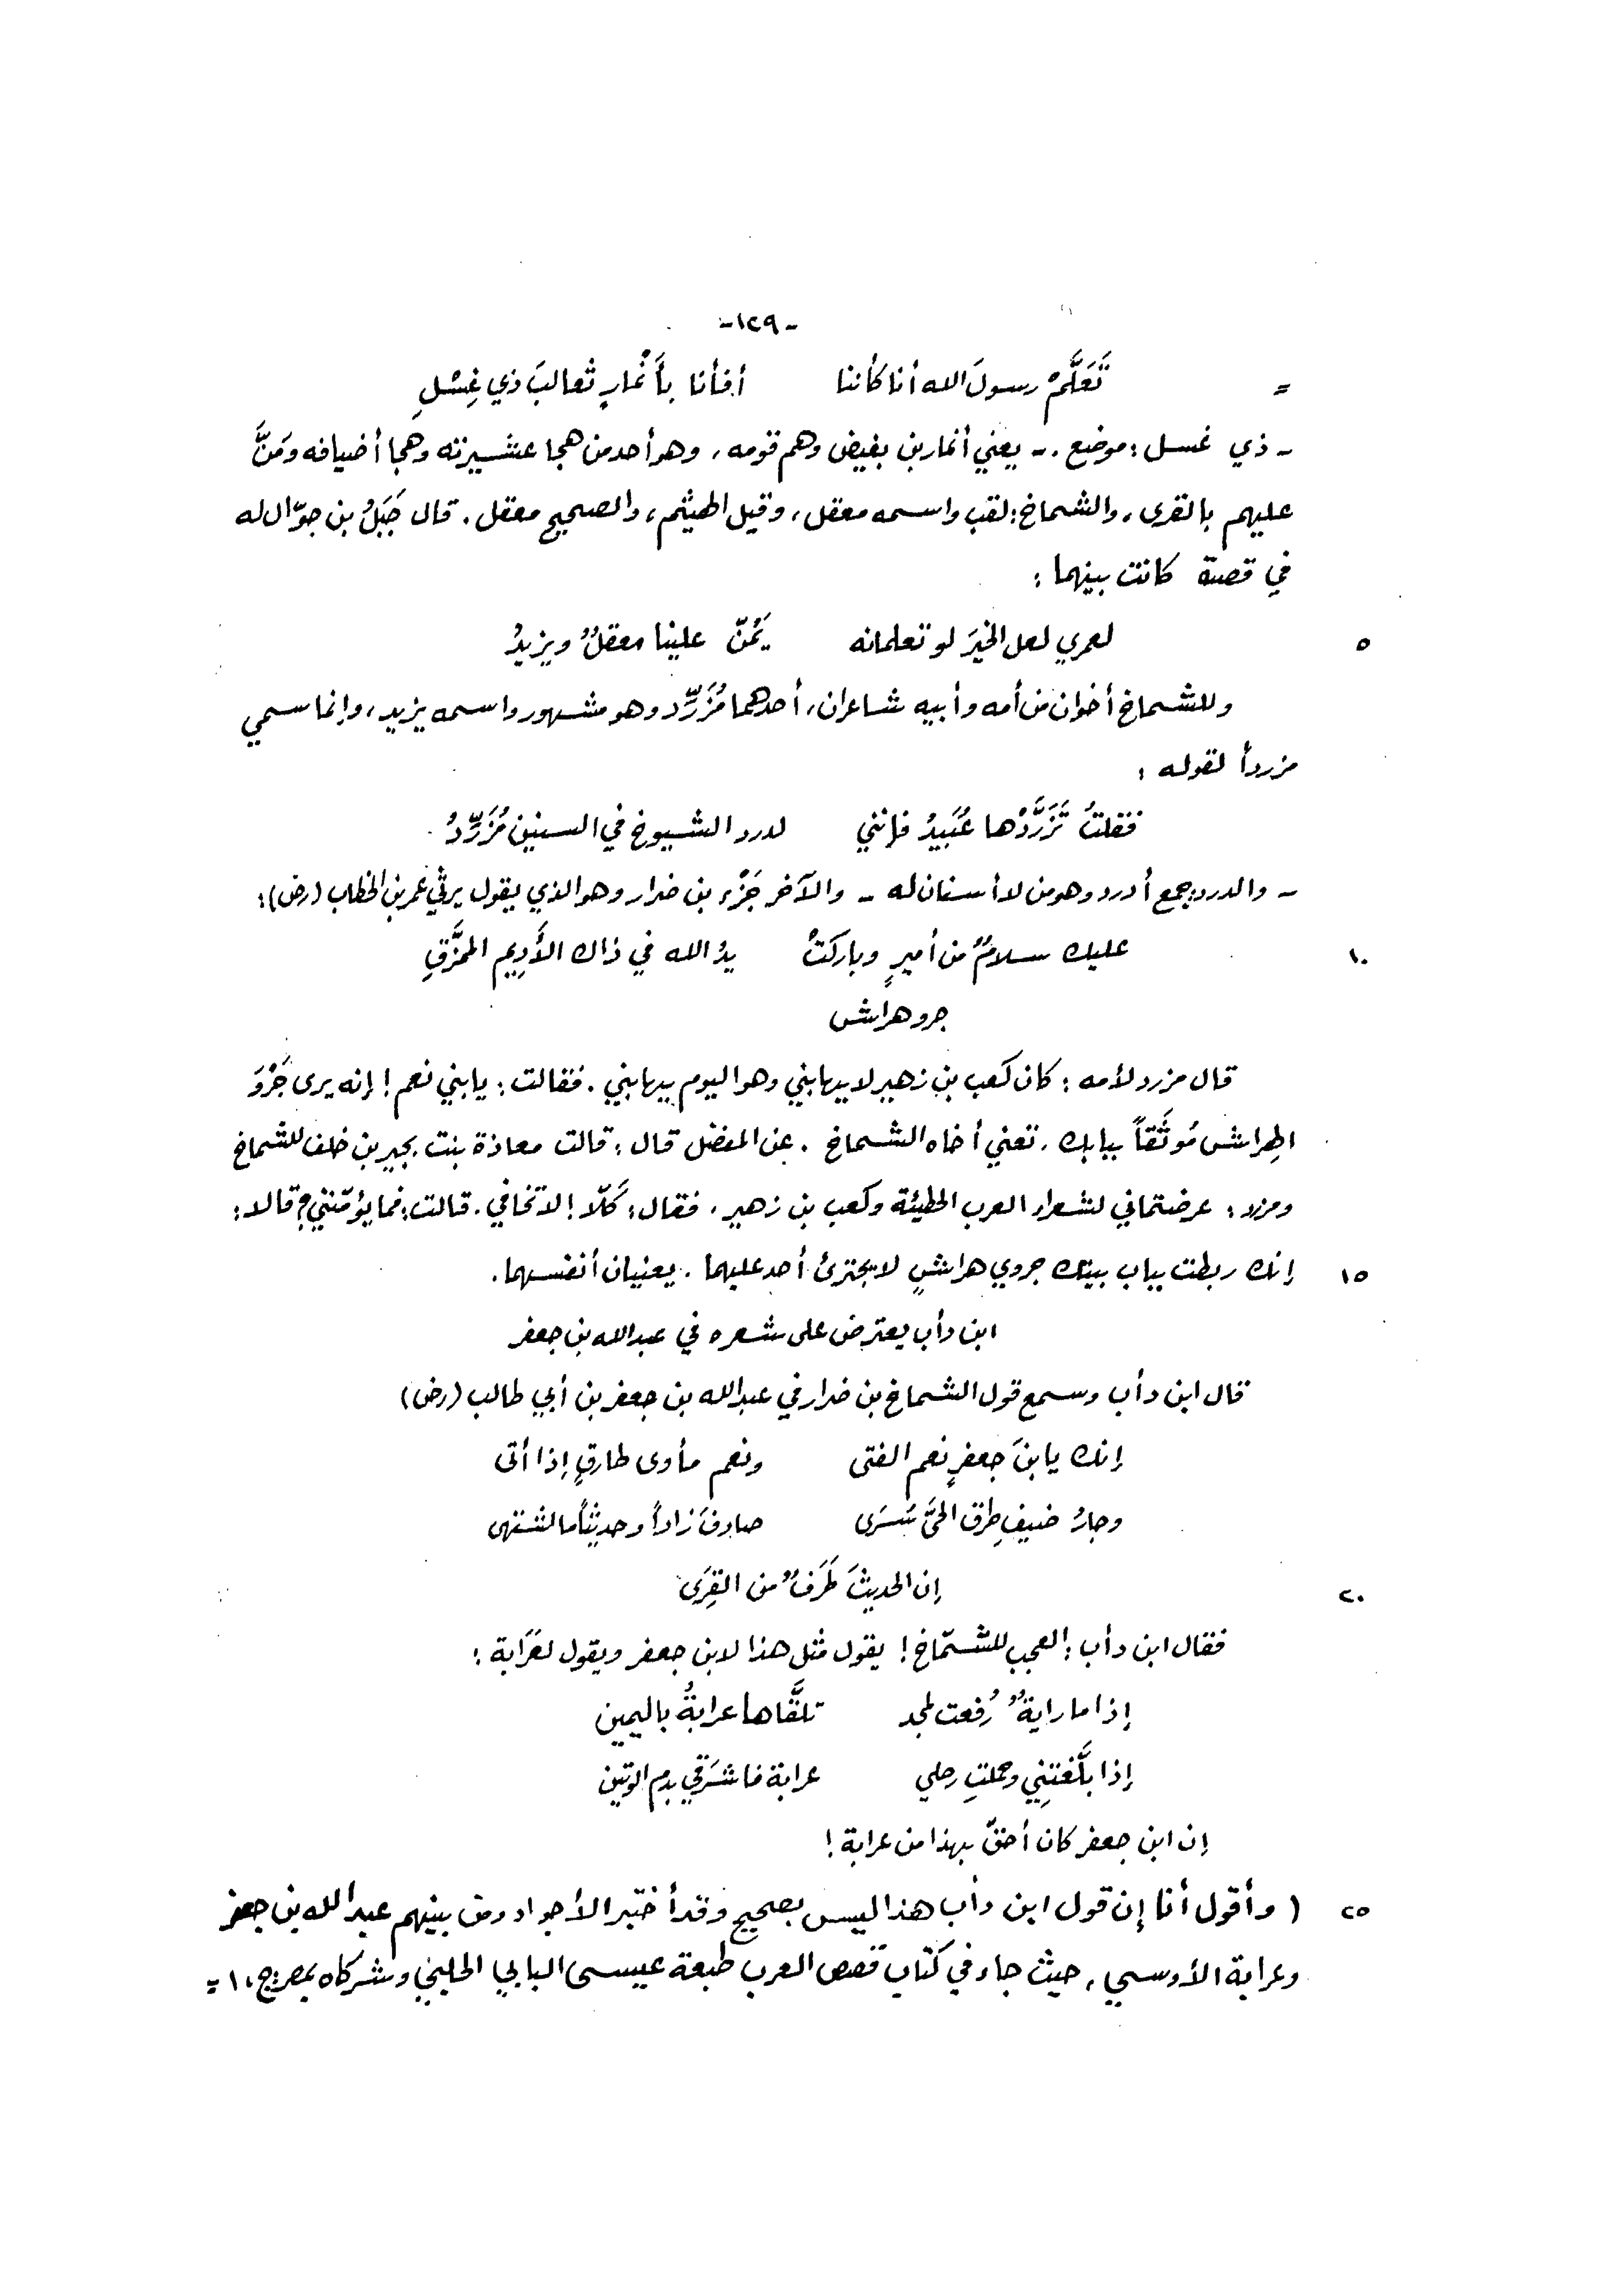 -١٢٩-
= تَعَلَّمْ رسولَ الله أنا كأننا أفأنا بأَنْمارٍ ثعالبَ ذي غِسْلِ
- ذي غسل : موضع . - يعني أنمار بن بغيض وهم قومه ، وهو أحد من هجا عشيرته وهجا أضيافه ومَنَّ
عليهم بالقرى ، والشماخ : لقب واسمه معقل ، وقيل الهيثم ، والصحيح معقل . قال جَبَلُ بن جوّال له
في قصة كانت بينهما :
٥ لعمري لعل الخيرَ لو تعلمانه يَمُنّ علينا معقلٌ ويزيدُ
وللشماخ أخوان من أمه وأبيه شاعران ، أحدهما مُزَرِّد وهو مشهور واسمه يزيد ، وإنما سمي
مزرداً لقوله :
فقلتُ تَزَرَّدْها عُبَيدُ فإنني لدرد الشيوخ في السنين مُزَرِّدُ
- والدرد جمع أدرد وهو من لا أسنان له - والآخر جَزْء بن ضرار وهو الذي يقول يرثي عمر بن الخطاب (رض) :
١٠ عليك سلامٌ من أميرٍ وباركتْ يدُ الله في ذاك الأَدِيم الممزَّقِ
جرو هراش
قال مزرد لأمه : كان كعب بن زهير لا يهابني وهو اليوم يهابني . فقالت : يا بني نعم ! إنه يرى جَرْوَ
الهِراش مُوثَقاً ببابك . تعني أخاه الشماخ . عن المفضل قال : قالت معاذة بنت بجير بن خلف للشماخ
ومزرد : عرضتماني لشعراء العرب الحطيئة وكعب بن زهير . فقال : كَلّا ! لا تخافي . قالت : فما يؤمّنني ؟ قالا :
١٥ إنك ربطت بباب بيتك جروي هراشٍ لا يجترئ أحد عليهما . يعنيان أنفسهما .
ابن دأب يعترض على شعره في عبد الله بن جعفر
قال ابن دأب وسمع قول الشماخ بن ضرار في عبد الله بن جعفر بن أبي طالب (رض)
إنك يا بنَ جعفرٍ نعم الفتى ونعم مأوى طارقٍ إذا أتى
وجارُ ضيفٍ طرق الحيَّ سُرَى صادفَ زاداً وحديثاً ما اشتهى
٢٠ إن الحديثَ طَرَفٌ من القِرَى
فقال ابن دأب : العجب للشمّاخ ! يقول مثل هذا لابن جعفر ويقول لعَرَابة :
إذا ما رايةٌ رُفعت لمجد تلقَّاها عرابةُ باليمين
إذا بلَّغتِني وحملتِ رحلي عرابة فاشرَقي بدم الوتين
إن ابن جعفر كان أحقّ بهذا من عرابة !
٢٥ ( وأقول أنا إن قول ابن دأب هذا ليس بصحيح وقد أختبر الأجواد ومن بينهم عبد الله بن جعفر
وعرابة الأوسي ، حيث جاء في كتاب قصص العرب طبعة عيسى البابي الحلبي وشركاه بمصر ج ، ١ =